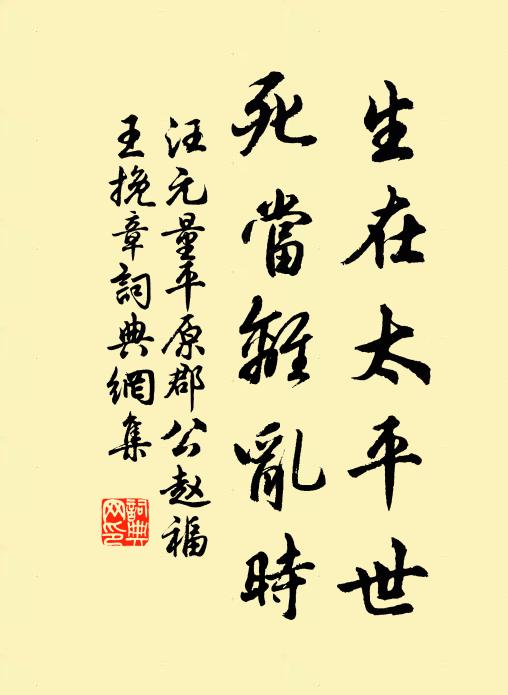 生在太平世
死當離亂時
汪元量平原郡公赵福
王挽章詞典網集
詞典网印